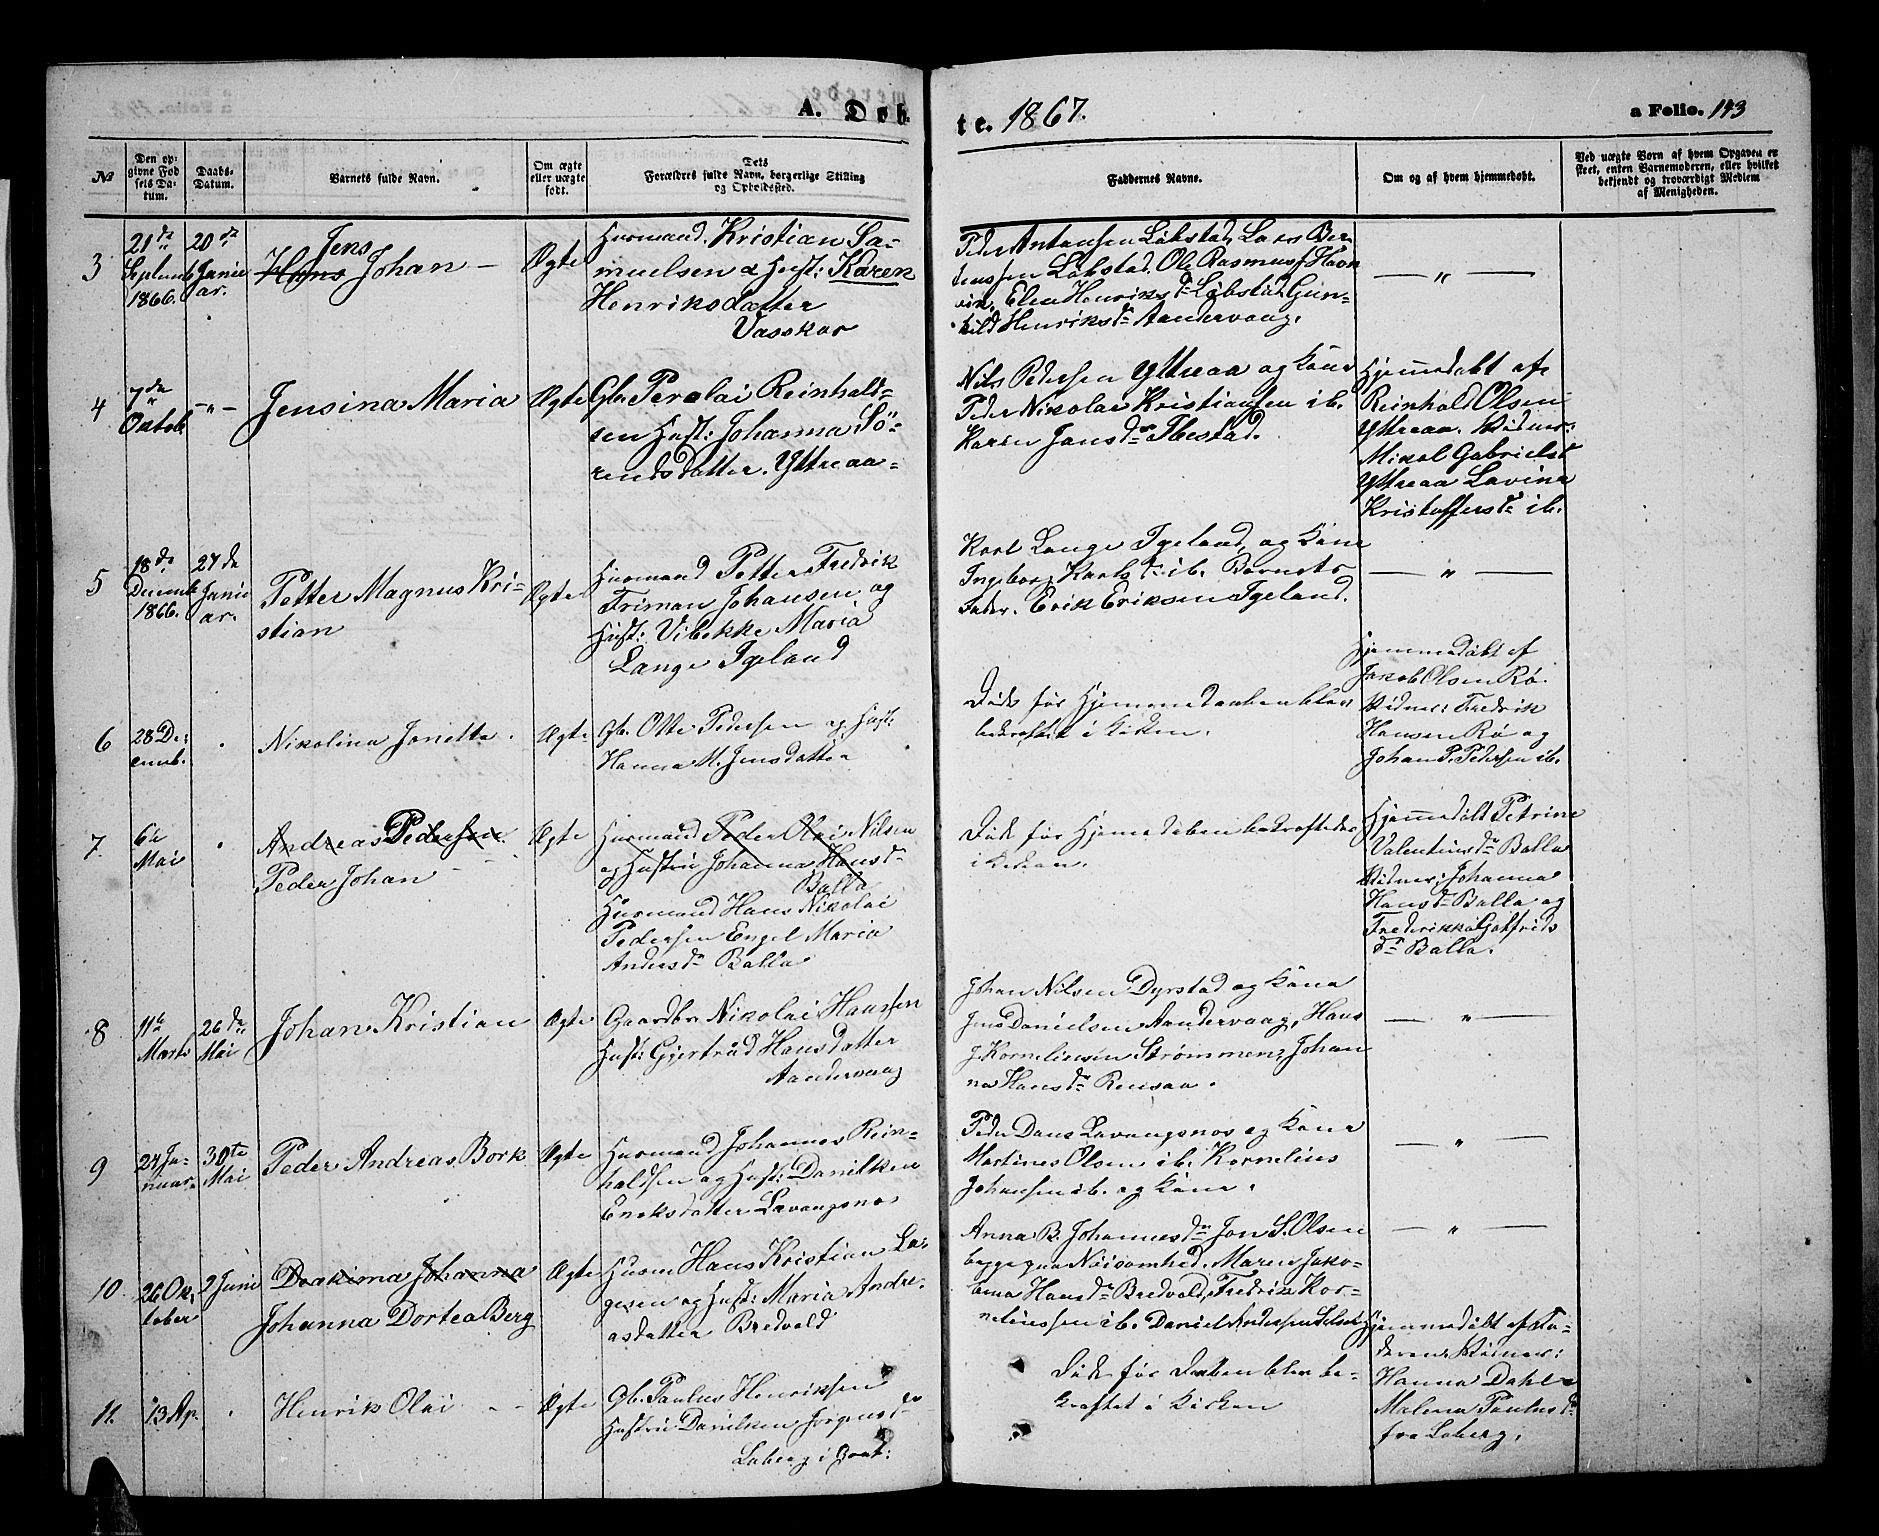 A. Døb-
te. 1867.
a Folio. 143
№
Den op-
givne Fød
sels Da-
tum.
Daabs-
Datum.
Barnets fulde Navn.
Om ægte
eller uægte
født.
Dets
Forældres fulde Navn, borgerlige Stilling
og Opholdssted.
Faddernes Navne.
Om og af hvem hjemmedøbt.
Ved uægte Børn af hvem Opgaven er
skeet, enten Barnemoderen, eller hvilket
bekjendt og troværdigt Medlem
af Menigheden.
3
21de
Septemb
1866.
20de
Janu
ar.
Jens
Hans Johan —
Ægte
Huusmand. Kristian Sa-
muelsen & Hust: Karen
Henriksdatter
Vasskar
Peder Antonsen Løbstad, Lars Ber-
tenssen Løbstad. Ole Rasmuss Havn
vik, Elen Henriksdr Løbstad Gun-
hild Henriksdr Aandervaag.
— " —
4
7de
Octob.
— " —
Jensina Maria
Ægte
Gbr. Perolai Reinhold-
sen Hust: Johanna Sö-
rensdatter. Yttreaa-
Nils Pedersen Yttreaa og Kone
Peder Nikolai Kristiansen ib.
Karen Jansdr Ibestad.
Hjemmedøbt af
Reinhold Olsen
Yttreaa. Vidner:
Mikal Gabrielsd
Yttreaa Lavina
Kristoffersdr ib.
5
18de
Decemb
1866.
27de
Janu
ar.
Petter Magnus Kri-
stian
Ægte
Huusmand Petter Fredrik
Friman Johansen og
Hust: Vibekke Maria
Lange Igeland
Karl Lange Igeland, og Kone
Ingeborg Karlsdr ib. Barnets
Fader. Erik Eriksen Igeland.
— " —
6
28 De-
cemb.
Nikolina Jonetta
Ægte
Gbr. Otte Pedersen og Hust:
Hanna M. Jensdatter
Døde før Hjemmedaaben blev
bekræftet i Kirken.
Hjemmedøbt af
Jakob Olsen Rø.
Vidner: Fredrik
Hansen Rø og
Johan P. Pedersen ib.
7.
6te
Mai
Andreas Pedersen
Peder Johan —
Ægte
Huusmand Peder Olai Nilsen
og Hustru Johanna Hansdr
Balla
Huusmand Hans Nikolai
Pedersen Engel Maria
Andersdr Balla
Døde før Hjemmedøben bekræftedes
i Kirken.
Hjemmedøbt Petrine
Valentinsdr Balla
Vidner: Johanna
Hansdr Balla og
Fredrikka Gotfrids
dr Balla.
8
11te
Marts
26de
Mai
Johan Kristian
Ægte
Gaardbr. Nikolai Hansen
Hust: Gjertrud Hansdatter
Aandervaag
Johan Nilsen Dyrstad og Kone
Jens Danielsen Aandervaag, Hans
J. Korneliussen Strømmen, Johan
na Hansdr Rensaa.
— " —
9
24 Ja-
nuar
30te
Mai
Peder Andreas Bork
Ægte
Huusmand Johannes Rein-
holdsen og Hust: Danilken
Enoksdatter Lavangsnes
Peder Dons Lavangsnes og Kone
Martines Olsen ib. Kornelius
Johansen ib. og Kone.
— " —
10
26 Ok-
tober
2 Juni
Joakima Johanna
Johanna Dortea Berg
Ægte
Husm Hans Kristian La-
gesen og Hust: Maria Andre-
asdatter Bredvold
Anna B. Johannesdr Jon S. Olsen
begge paa Nøisomhed. Maren Jako-
bina Hansdr Bredvold, Fredrik Kor-
neliussen ib. Daniel Anderssen Elset
— " —
11.
13 Ap.
Henrik Olai
Ægte
Gbr. Paulus Henriksen
Hustru Danilken Jörgensdr
Loberg i Gratt:
Døde før Daaben blev be-
kræftet i Kirken
Hjemmedøbt af Fa-
deren, Vidner:
Hanna Dahl
Malena Paulusdr
fra Loberg.